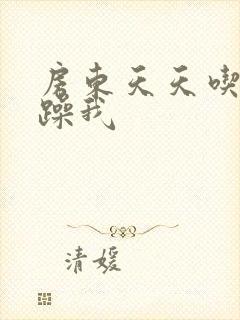 房东天天喫
躁我
清媛